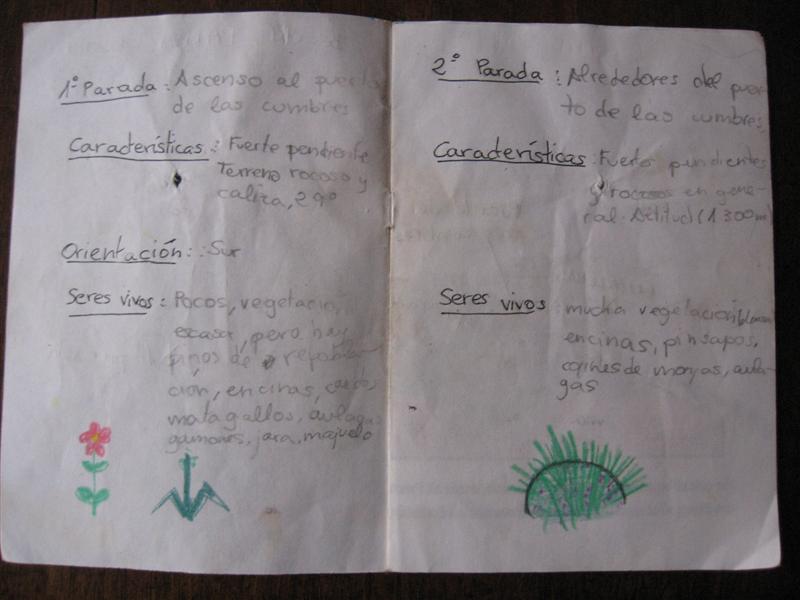 1º Parada: Ascenso al puerto
de las cumbres
Características: Fuerte pendiente
Terreno rocoso y
caliza, 29º
Orientación: Sur
Seres vivos: Pocos, vegetación
escasa, pero hay
pinos de repobla-
ción, encinas,
matagallos, aulagas
gamones, jara, majuelo
2º Parada: Alrededores del puer-
to de las cumbres,
Características: Fuertes pendientes
y rocosos en gene-
ral. Altitud (1300m)
Seres vivos: mucha vegetación
encinas, pinsapos,
cojines de monjas, aula-
gas